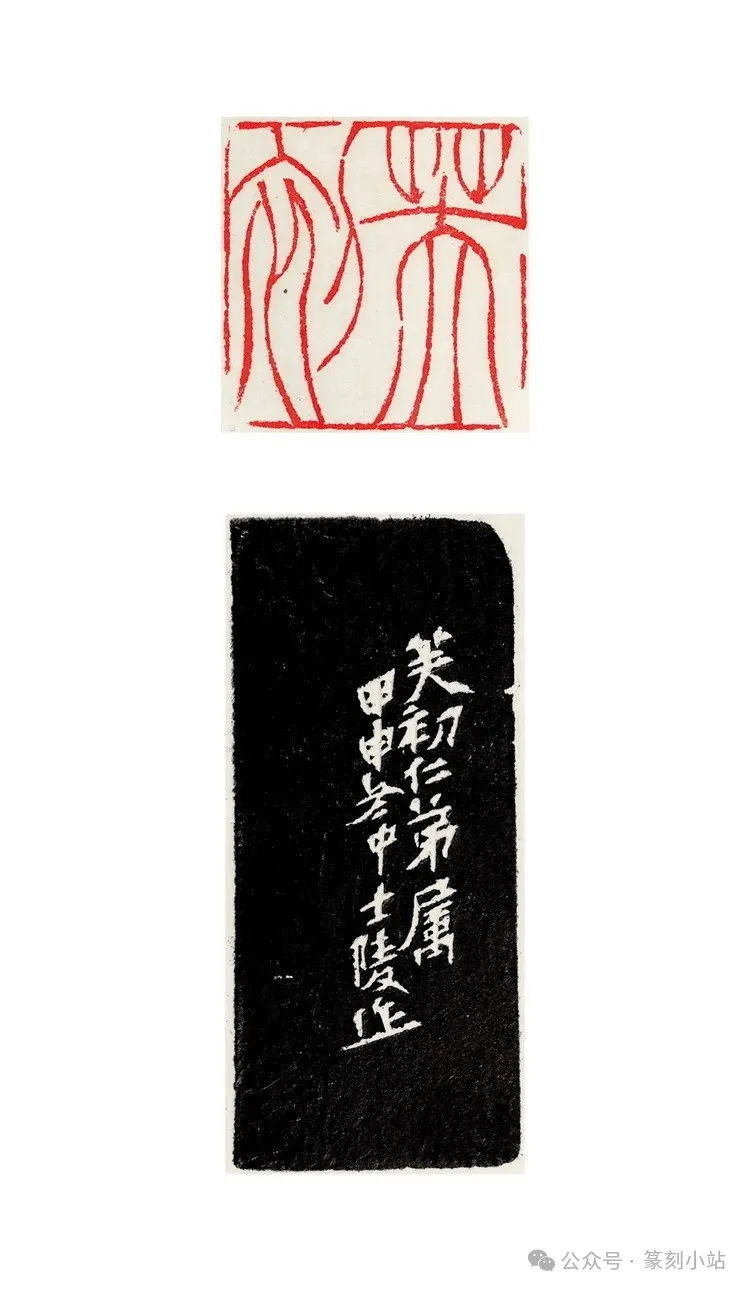 笑初
笑初仁弟属
甲申冬中士陵作
公众号 · 篆刻小站